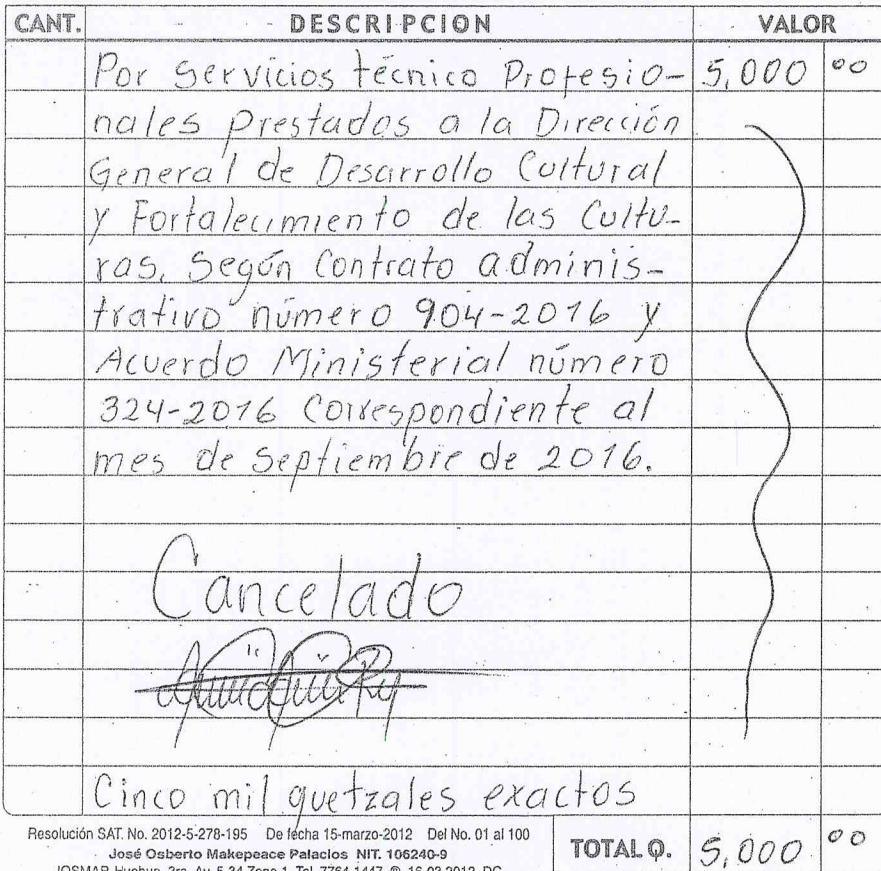 CANT. DESCRIPCION VALOR
Por Servicios técnico Profesio- 5,000 00
nales prestados a la Dirección
General de Desarrollo Cultural
y Fortalecimiento de las Cultu-
ras, Según Contrato adminis-
trativo número 904-2016 y
Acuerdo Ministerial número
324-2016 Correspondiente al
mes de Septiembre de 2016.
Cancelado
Cinco mil quetzales exactos
Resolución SAT. No. 2012-5-278-195 De fecha 15-marzo-2012 Del No. 01 al 100
José Osberto Makepeace Palacios NIT. 106240-9
TOTAL Q. 5,000 00
JOSMAR Huehue. 3ra. Av. 5-34 Zona 1, Tel. 7764 1447 ® 16-03-2012 DC